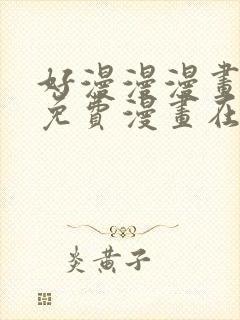 好漫漫漫畫
免費漫畫在
炎黃子